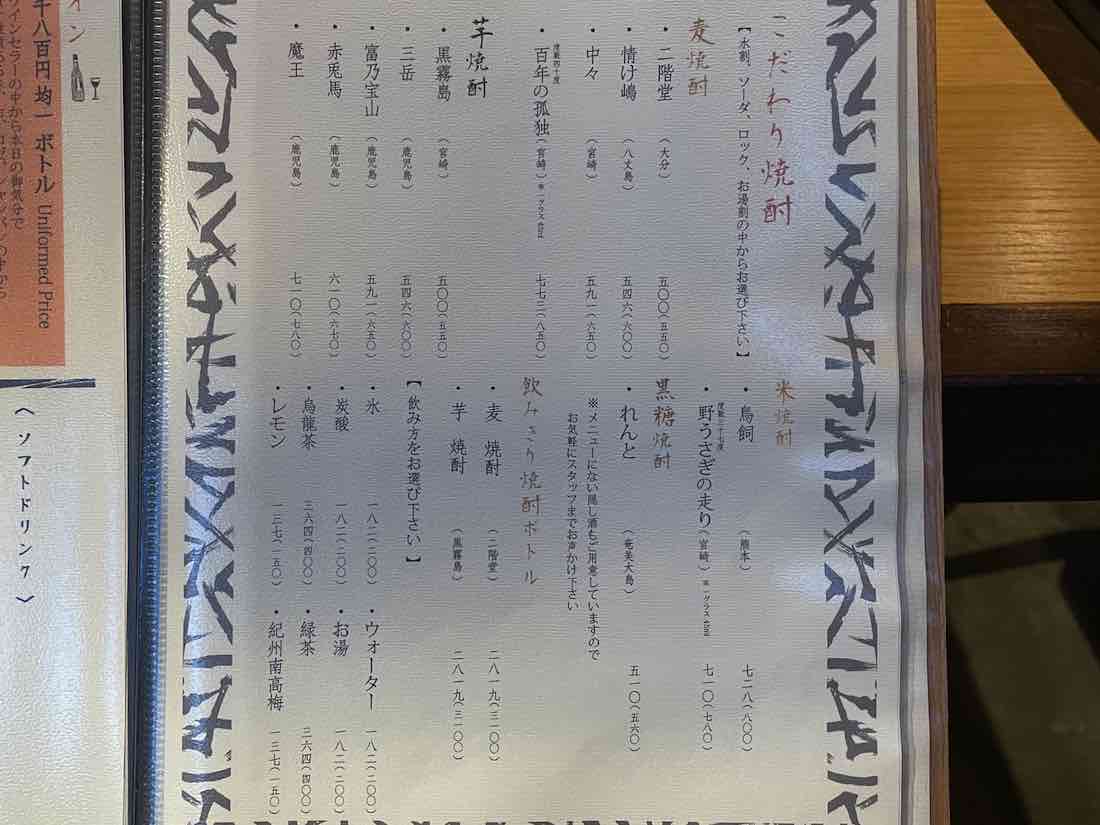 こだわり焼酎
【水割、ソーダ、ロック、お湯割の中からお選び下さい】
麦焼酎
・二階堂(大分) 五〇〇(五五〇)
・情け嶋(八丈島) 五四六(六〇〇)
・中々(宮崎) 五九一(六五〇)
度数四十度
・百年の孤独(宮崎)※一グラス45ml 七七三(八五〇)
芋焼酎
・黒霧島(宮崎) 五〇〇(五五〇)
・三岳(鹿児島) 五四六(六〇〇)
・富乃宝山(鹿児島) 五九一(六五〇)
・赤兎馬(鹿児島) 六一〇(六七〇)
・魔王(鹿児島) 七一〇(七八〇)
米焼酎
・鳥飼(熊本) 七二八(八〇〇)
度数三十七度
・野うさぎの走り(宮崎)※一グラス45ml 七一〇(七八〇)
黒糖焼酎
・れんと(奄美大島) 五一〇(五六〇)
※メニューにない隠し酒もご用意していますので
お気軽にスタッフまでお声かけ下さい
飲みきり焼酎ボトル
・麦 焼酎(二階堂) 二八一九(三一〇〇)
・芋 焼酎(黒霧島) 二八一九(三一〇〇)
【飲み方をお選び下さい】
・氷 一八二(二〇〇) ・ウォーター 一八二(二〇〇)
・炭酸 一八二(二〇〇) ・お湯 一八二(二〇〇)
・烏龍茶 三六四(四〇〇) ・緑茶 三六四(四〇〇)
・レモン 一三七(一五〇) ・紀州南高梅 一三七(一五〇)
イン
千八百円 均一 ボトル Uniformed Price
ワインセラーの中から本日の御気分で
〈ソフトドリンク〉